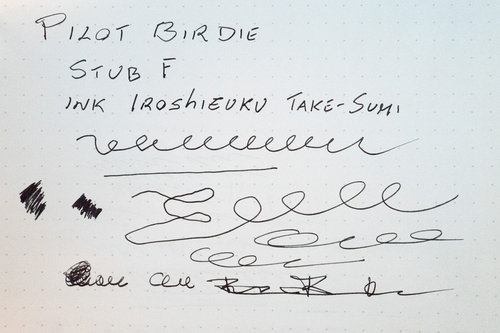 PILOT BIRDIE
STUB F
INK IROSHIEUKU TAKE-SUMI